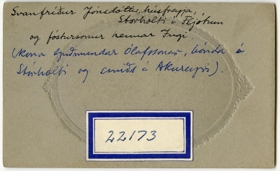 Svanfríður Jónsdóttir húsfreyja,
Stórholti í Fljótum
og fóstursonur hennar Ingi.
(kona Guðmundar Ólafssonar, bónda á
Stórholti og smiðs á Akureyri).
22173